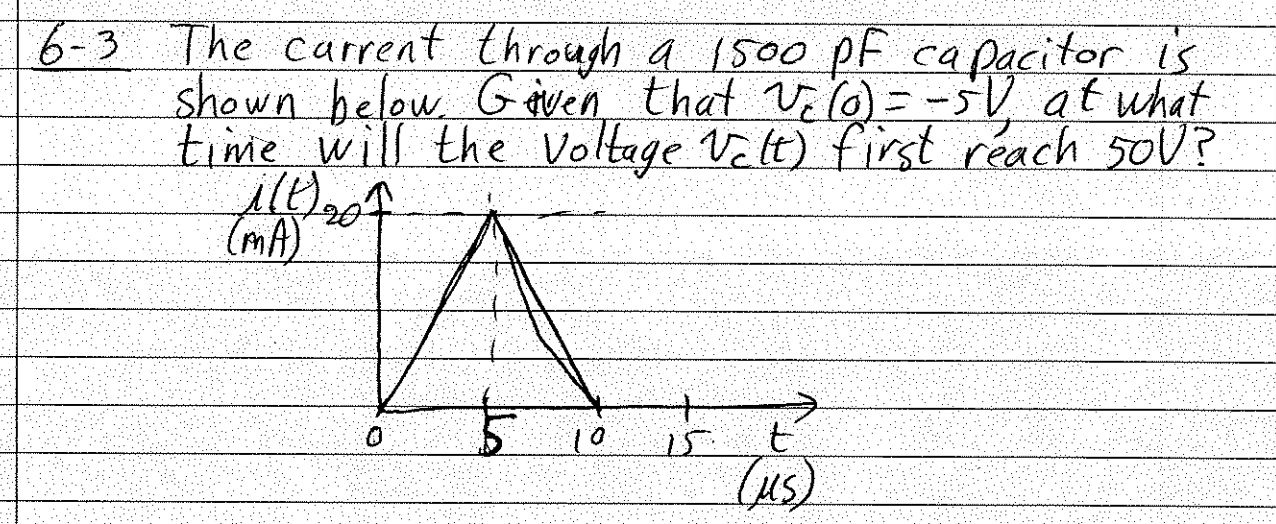 6-3 The current through a 1500 pF capacitor is
shown below. Given that Vc(0) = -5V, at what
time will the voltage Vc(t) first reach 50V?
i(t) 20
(mA)
0 5 10 15 t
(μs)